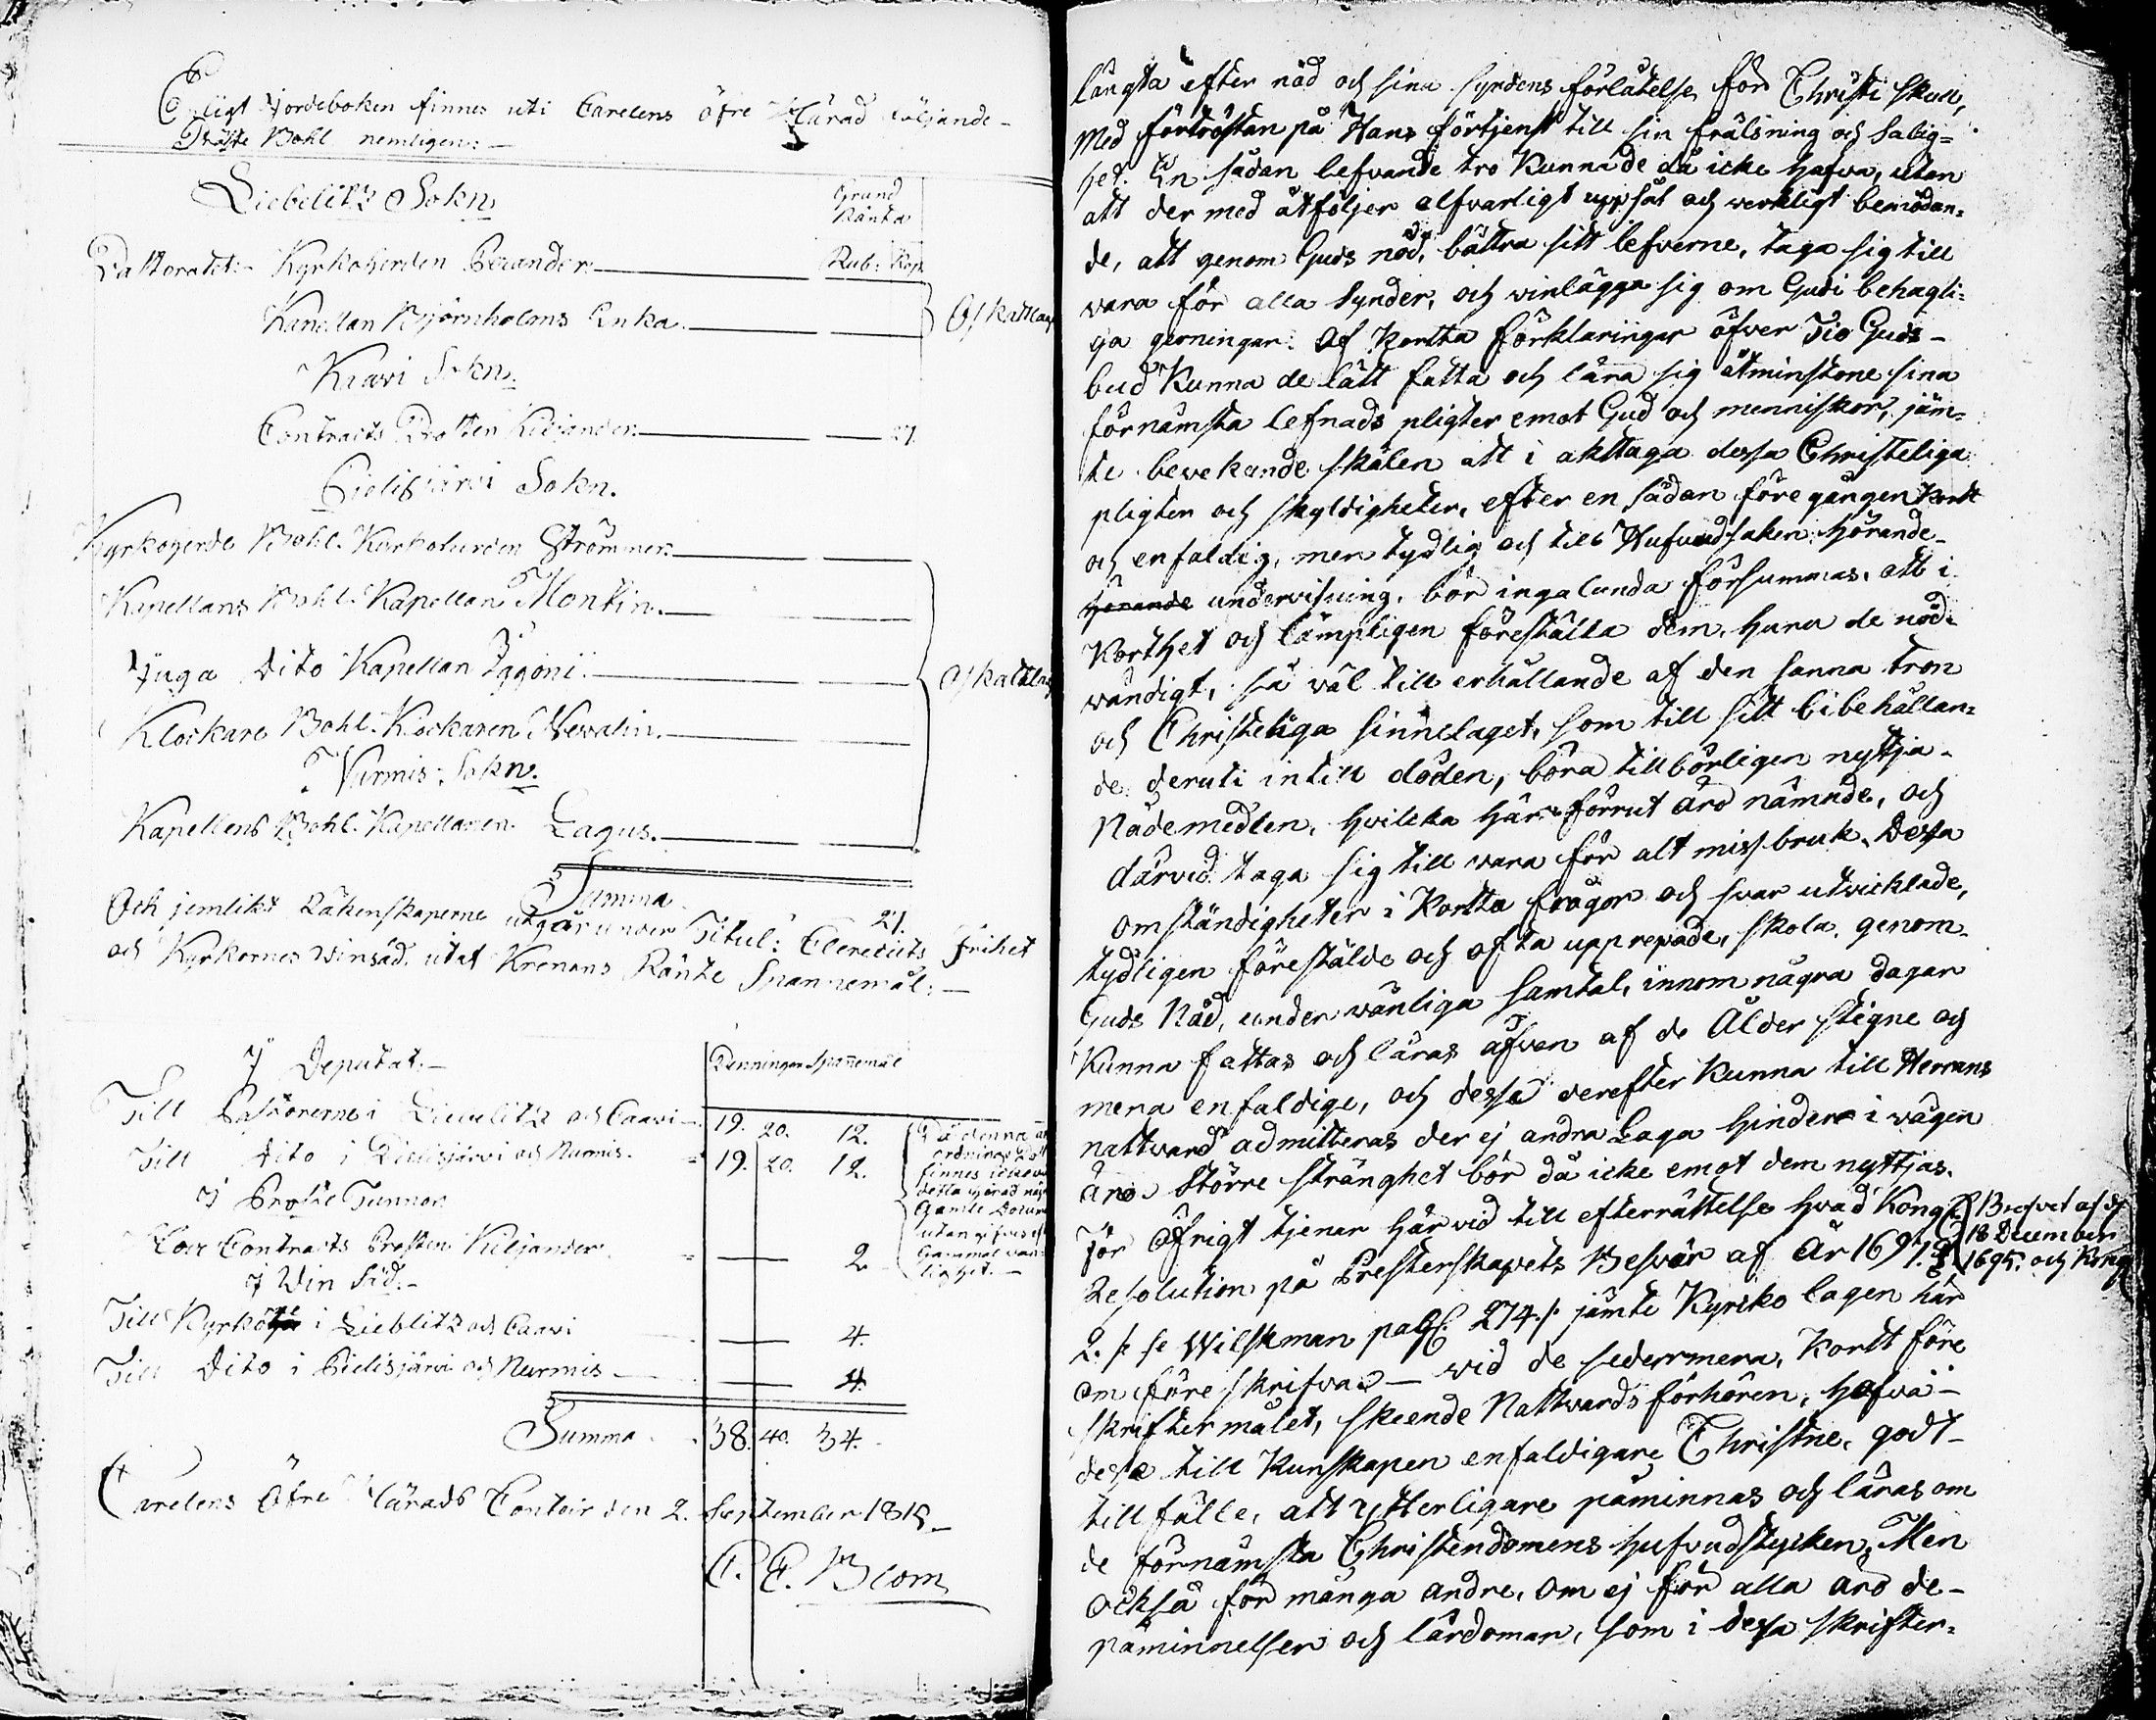 Enligt Jordeboken finnes uti Carelens öfre Härad följande
Präste Bohl nemligen:
Liebelitz Sokn
Grund Ränta
Pastoratet: Kyrkoherden Perander
Rub: Kop.
Kapellan Björnholms Enka
Oskattlag
Kaavi Sokn.
Contracts Prosten Kiljander
27.
Pielisjärvi Sokn.
Kyrkoherde Bohl. Kyrkoherden Strömmer
Kapellans Bohl. Kapellan Montin.
Juga Dito Kapellan Iggoni
Oskattlag
Klockare Bohl. Klockaren Nevalin.
Nurmis Sokn.
Kapellens Bohl. Kapellanen Lagus.
Summa
27.
Och jemlikt Räkenskaperne utgår under Titul: Cleresiets frihet
och Kyrkornes Winsäd, utaf Kronans Ränte Spannemål:
I Deputat.
Penningar Spannemål
Till Pastorerne i Liebelitz och Caavi 19. 20. 12.
Till Dito i Pielisjärvi och Nurmis. 19. 20. 12.
På denna
ordning
finnes icke
detta Härad
Gamle
utan gifves
Gammal van-
lighet.
I Proste Tunnor
Till Contracts Prosten Kiljander 2
I Win Säd.
Till Kyrko i Lieblitz och Caavi 4.
Till Dito i Pielisjärvi och Nurmis 4.
Summa 38. 40. 34.
Carelens Öfre Härads Contoir den 2. September 1818.
C. E. Blom
längta efter nåd och sina synders förlåtelse för Christi skull,
med förtröstan på Hans förtjenst till sin frälsning och Salig-
het. En sådan lefvande tro Kunna de då icke hafva, utan
att der med åtföljer alfvarligt uppsåt och verkligt bemödan-
de, att genom Guds nåd, bättra sitt lefverne, taga sig till
vara för alla Synder, och vinlägga sig om Gudi behagli-
ga gerningar. Af Kortta förklaringar öfver Tio Guds-
bud Kunna de lätt fatta och lära sig åtminstone sina
förnämsta lefnads pligter emot Gud och menniskor, jäm-
te bevekande skälen att i akttaga dessa Christeliga
pligter och skyldigheter, efter en sådan föregången Kortt
och enfaldig, men tydlig och till Hufvudsaken hörande
hörande undervisning, bör ingalunda försummas, att i
Korthet och lämpligen föreställa dem, huru de nöd-
vändigt, så väl till erhållande af den sanna tron
och Christeliga sinnelaget, som till sitt bibehållan-
de deruti intill döden, böra tillbörligen nyttja
Nådemedlen, hvilcka här förrut äro nämnde, och
därvid taga sig till vara för alt missbruk. Dessa
omständigheter i Kortta frågor och svar utvicklade,
tydligen förestälde och ofta upprepade, skola genom
Guds Nåd, under vänliga Samtal, innom några dagar
Kunna fattas och läras äfven af de Ålder stigne och
mera enfaldige, och dessa derefter Kunna till Herrans
nattvard admitteras der ej andra Laga hinder i vägen
äro. Större stränghet bör då icke emot dem nyttjas.
för Öfrigt tjenar härvid till efterrättelse hvad Kongl. Brefvet af d
18 December
1695. och Kong
Resolution på Presterskapets Besvär af År 1697. §
2. /: se Wilskman pag. 274 :/ jämte Kyrko lagen här
om föreskrifva — vid de sedermera, Kortt före
skriftermålet, skeende Nattvards förhören, hafva
dessa till Kunskapen enfaldigare Christne, godt
tillfälle, att ytterligare påminnas och läras om
de förnämsta Christendomens hufvudstycken, Men
också för många andre, om ej för alla äro de
påminnelser och lärdomar, som i dessa skrifter-